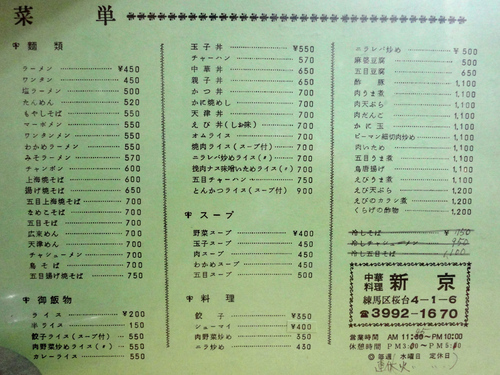 菜 単
麺類
ラーメン ¥450
ワンタン 450
塩ラーメン 500
たんめん 520
もやしそば 550
マーボメン 550
ワンタンメン 550
わかめラーメン 550
みそラーメン 570
チャンポン 600
上海焼そば 650
揚げ焼そば 650
五目上海焼そば 700
なめこそば 700
五目そば 700
広東めん 700
天津めん 700
チャシューメン 700
鳥そば 750
五目揚げ焼そば 750
御飯物
ライス ¥200
半ライス 150
餃子ライス(スープ付) 550
肉野菜炒めライス(〃) 550
カレーライス 550
玉子丼 ¥550
チャーハン 570
中華丼 650
親子丼 650
かつ丼 700
かに焼めし 700
天津丼 700
えび丼(しお味) 700
オムライス 700
焼肉ライス(スープ付) 700
ニラレバ炒めライス(〃) 700
挽肉ナス味噌いためライス(〃) 700
五目チャーハン 750
とんかつライス(スープ付) 900
スープ
野菜スープ ¥400
玉子スープ 450
肉スープ 450
わかめスープ 450
五目スープ 500
料理
餃子 ¥350
シューマイ ¥400
肉野菜炒め 430
ニラ炒め 430
ニラレバ炒め ¥500
麻婆豆腐 500
五目豆腐 650
酢豚 1,100
肉うま煮 1,100
肉天ぷら 1,100
肉だんご 1,100
かに玉 1,100
ピーマン細切肉炒め 1,100
肉いため 1,100
五目うま煮 1,100
鳥唐揚げ 1,100
えびうま煮 1,100
えび天ぷら 1,200
えびのカラシ煮 1,200
くらげの酢物 1,200
冷しそば ¥750
冷しチャシューメン 950
冷し五目そば 1,100
中華料理 新京
練馬区桜台4-1-6
☎3992-1670
営業時間 AM 11:00~PM 10:00
休憩時間 PM3 ~PM5
◎毎週水曜日 定休日